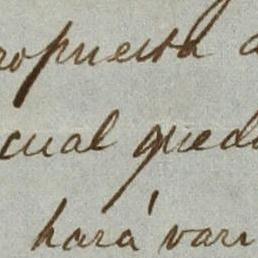 ropuesta a
cual queda
hará vari